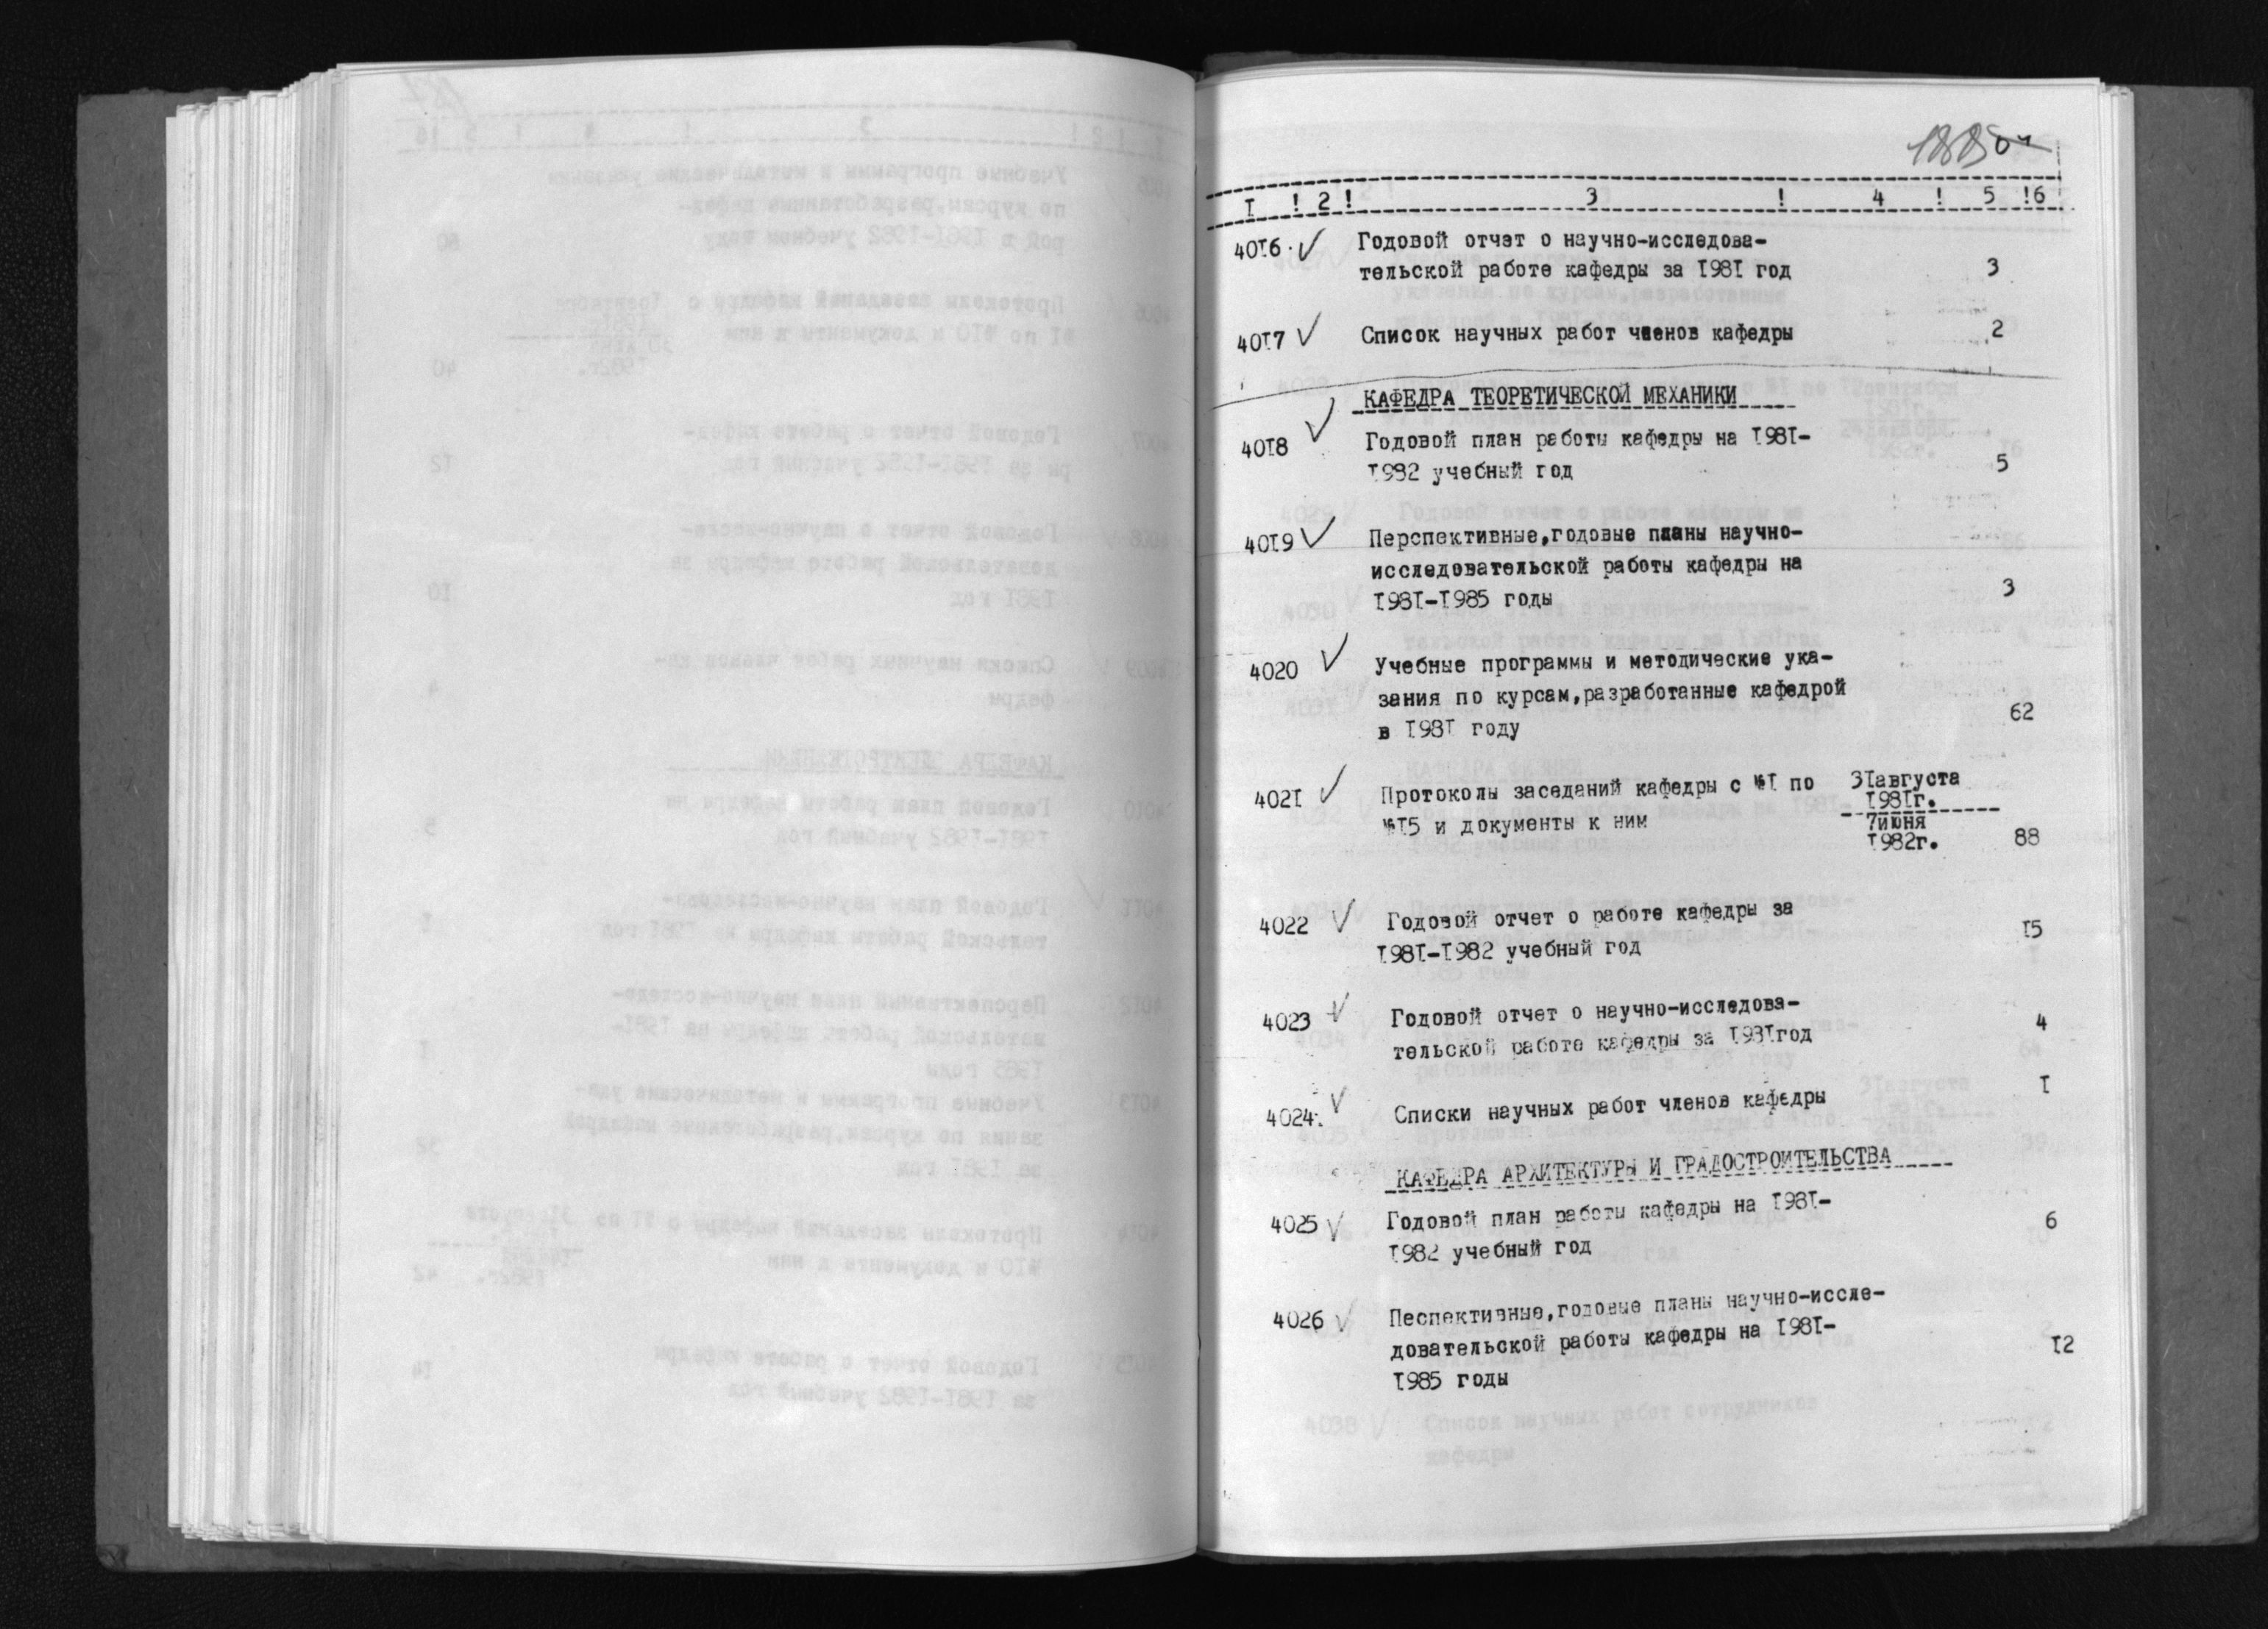 I ! 2 ! 3 ! 4 ! 5 !6
4016. ✓ Годовой отчет о научно-исследова-
тельской работе кафедры за I98I год 3
40I7 ✓ Список научных работ членов кафедры 2
КАФЕДРА ТЕОРЕТИЧЕСКОЙ МЕХАНИКИ
40I8 ✓ Годовой план работы кафедры на I98I-
I982 учебный год 5
40I9 ✓ Перспективные,годовые планы научно-
исследовательской работы кафедры на
I98I-I985 годы 3
4020 ✓ Учебные программы и методические ука-
зания по курсам,разработанные кафедрой
в I98I году 62
402I ✓ Протоколы заседаний кафедры с №I по 3Iавгуста
I98Iг.
№I5 и документы к ним 7июня
I982г. 88
4022 ✓ Годовой отчет о работе кафедры за
I98I-I982 учебный год I5
4023 ✓ Годовой отчет о научно-исследова-
тельской работе кафедры за I98Iгод 4
4024. ✓ Списки научных работ членов кафедры I
КАФЕДРА АРХИТЕКТУРЫ И ГРАДОСТРОИТЕЛЬСТВА
4025 ✓ Годовой план работы кафедры на I98I-
I982 учебный год 6
4026 ✓ Песпективные,годовые планы научно-иссле-
довательской работы кафедры на I98I-
I985 годы I2